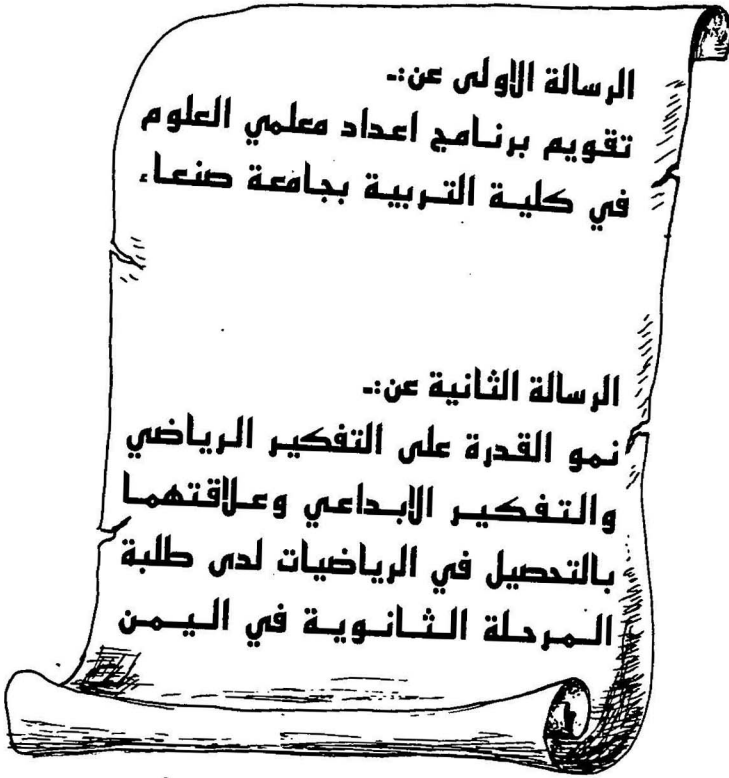 الرسالة الاولى عن:-
تقويم برنامج اعداد معلمي العلوم
في كلية التربية بجامعة صنعاء
الرسالة الثانية عن:-
نمو القدرة على التفكير الرياضي
والتفكير الابداعي وعلاقتهما
بالتحصيل في الرياضيات لدى طلبة
المرحلة الثانوية في اليمن